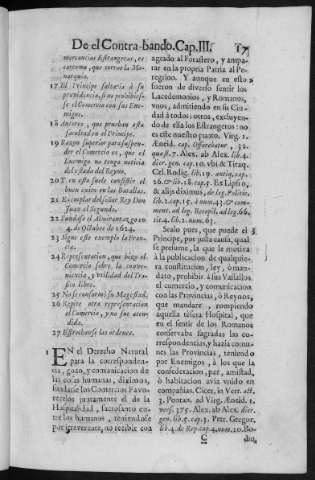 De el Contra-bando.Cap.III. 17
mercancias Estrangeras, es
carcoma, que corroe la Mo-
narquia.
17 El Principe faltaria à su
providencia, si no prohibies-
se el Comercio con sus Ene-
migos.
18 Autores, que prueban esta
facultad en el Principe.
19 Razon superior para suspen-
der el Comercio es, que el
Enemigo no tenga noticia
del estado del Reyno.
20 Y en esta suele consistir el
buen exito en las Batallas.
21 Exemplar del señor Rey Don
Juan el Segundo.
22 Fundase el Almirantazgo à
4. de Octubre de 1624.
23 Sigue este exemplo la Fran-
cia.
24 Representacion, que hizo el
Comercio sobre la conve-
niencia, y utilidad del Tra-
fico libre.
25 No se conformò su Magestad.
26 Repite otra representacion
el Comercio, y no fue aten-
dida.
27 Estrechanse las ordenes.
EN el Derecho Natural
para la correspondencia,
gozo, y comunicacion de
las cosas humanas,
fundase los Comercios Favo-
tecelos justamente el de la
Hospitalidad, sacrosanto en-
tre los humanos, teniendose
por irreverente, no recibir con
agrado al Forastero, y ampa-
rar en la propria Patria al Pe-
regrino. Y aunque en esto
fueron de diverso sentir los
Lacedemonios, y Romanos,
unos, admitiendo en su Ciu-
dad à todos: otros, excluyen-
do de ella los Estrangeros: no
es este nuestro punto. Virg. 1.
Æneid. cap. Offeratebar, 32.
quæst.7. Alex. ab Alex. lib.4.
dier. gen.cap.10. vbi de Tiraq.
Cel. Rodig. lib.19. antiq.cap.
26. & lib.18.cap.5. Ex Lipsio,
& aliis diximus, de leg. Politic.
lib.2.cap.15. à num.43. & com-
ment. ad leg. Recopil. ad leg.66.
tit.4. lib.2. num.63.
Sealo pues, que puede el 3
Principe, por justa causa, qual
se presume, la que le motiva
à la publicacion de qualquie-
ra constitucion, ley, ò man-
dato, prohibir à sus Vassallos
el comercio, y comunicacion
con las Provincias, ò Reynos,
que mandare, rompiendo
aquella tessera Hospital, que
en el sentir de los Romanos
conservaba sagradas las co-
rrespondencias, y hazia comu-
nes las Provincias, teniendo
por Enemigos, à los que la
confederacion, paz, amistad,
ò habitacion avia unido en
compañias. Cicer. in Verr. act.
3. Pontan. ad Virg. Æneid. 1.
vers.375. Alex. ab Alex. dier.
gen. lib.5.cap.3. Petr. Gregor.
lib.4. de Rep. cap.4. num.20. Bo-
C din.